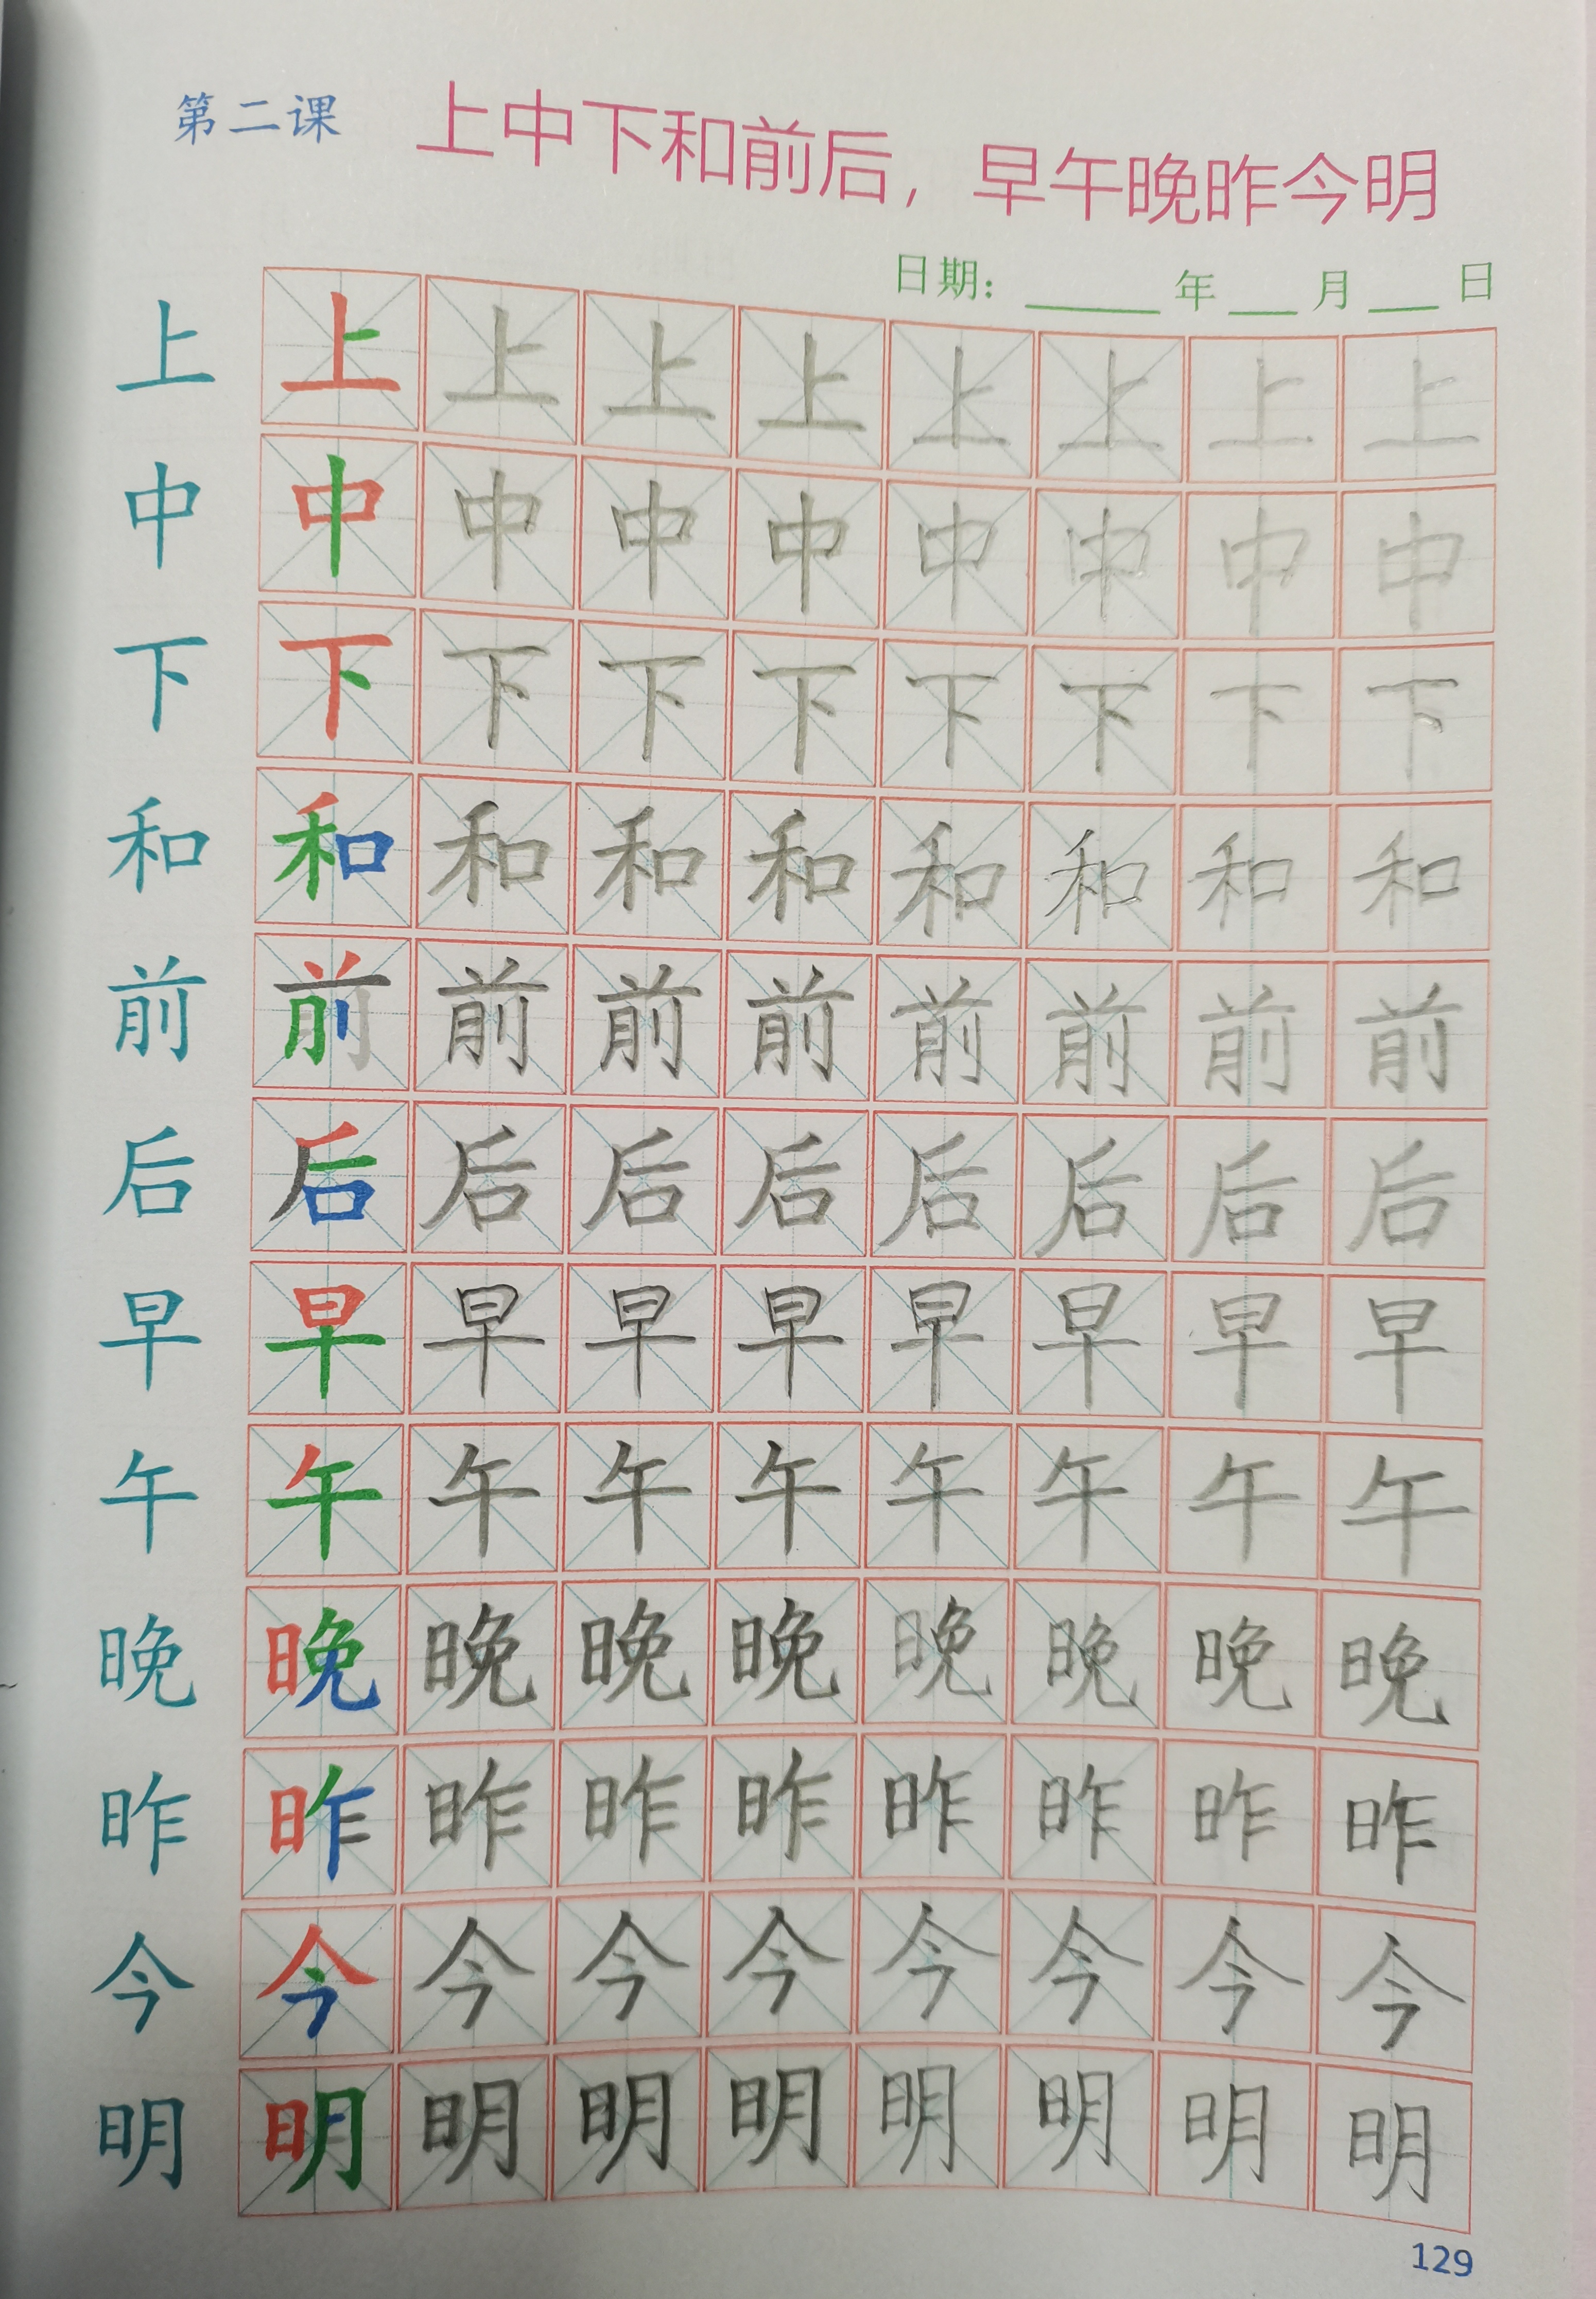 第二课 上中下和前后，早午晚昨今明
日期：______ 年 ___ 月 ___ 日
上 上 上 上 上 上 上 上 上
中 中 中 中 中 中 中 中 中
下 下 下 下 下 下 下 下 下
和 和 和 和 和 和 和 和 和
前 前 前 前 前 前 前 前 前
后 后 后 后 后 后 后 后 后
早 早 早 早 早 早 早 早 早
午 午 午 午 午 午 午 午 午
晚 晚 晚 晚 晚 晚 晚 晚 晚
昨 昨 昨 昨 昨 昨 昨 昨 昨
今 今 今 今 今 今 今 今 今
明 明 明 明 明 明 明 明 明
129